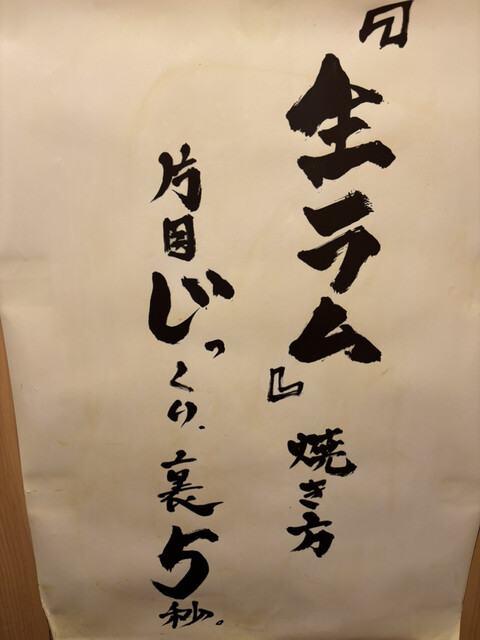 『生ラム』焼き方
片面じっくり、裏5秒。